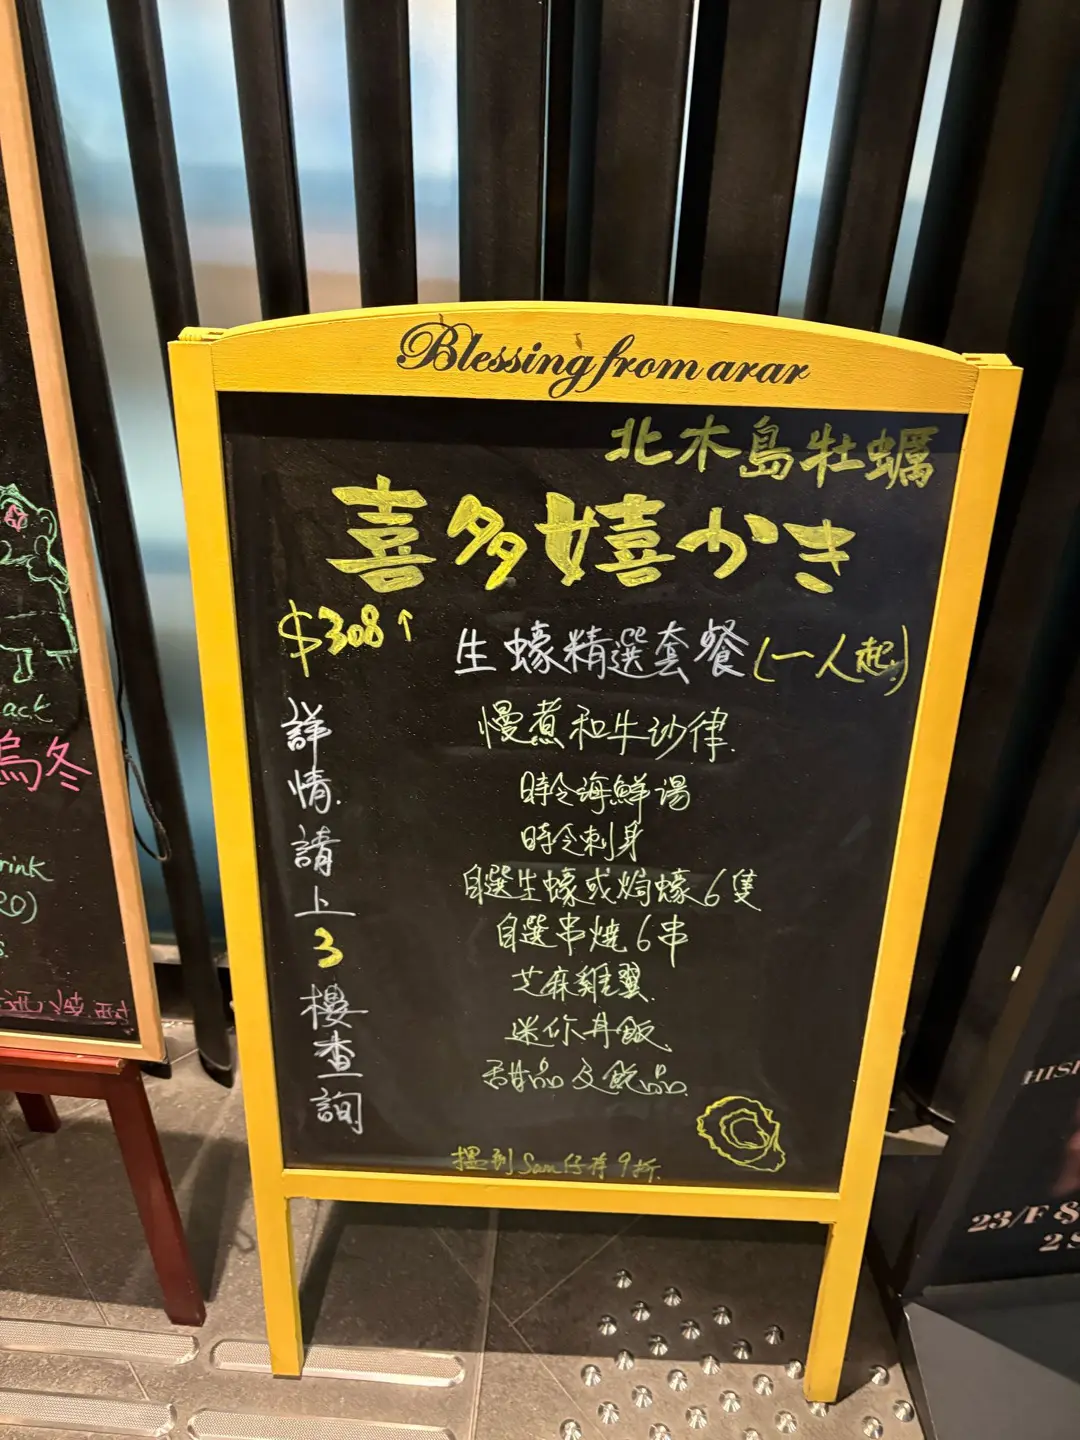 Blessing from arar
北木島牡蠣
喜多嬉かき
$308↑
生蠔精選套餐(一人起)
慢煮和牛沙律
時令海鮮湯
時令刺身
自選生蠔或焗蠔6隻
自選串燒6串
芝麻雞翼
迷你丼飯
甜品及飲品
詳情請上3樓查詢
搵到Sam仔有9折
ack
烏冬
rink
s.
HISK
23/F &
2